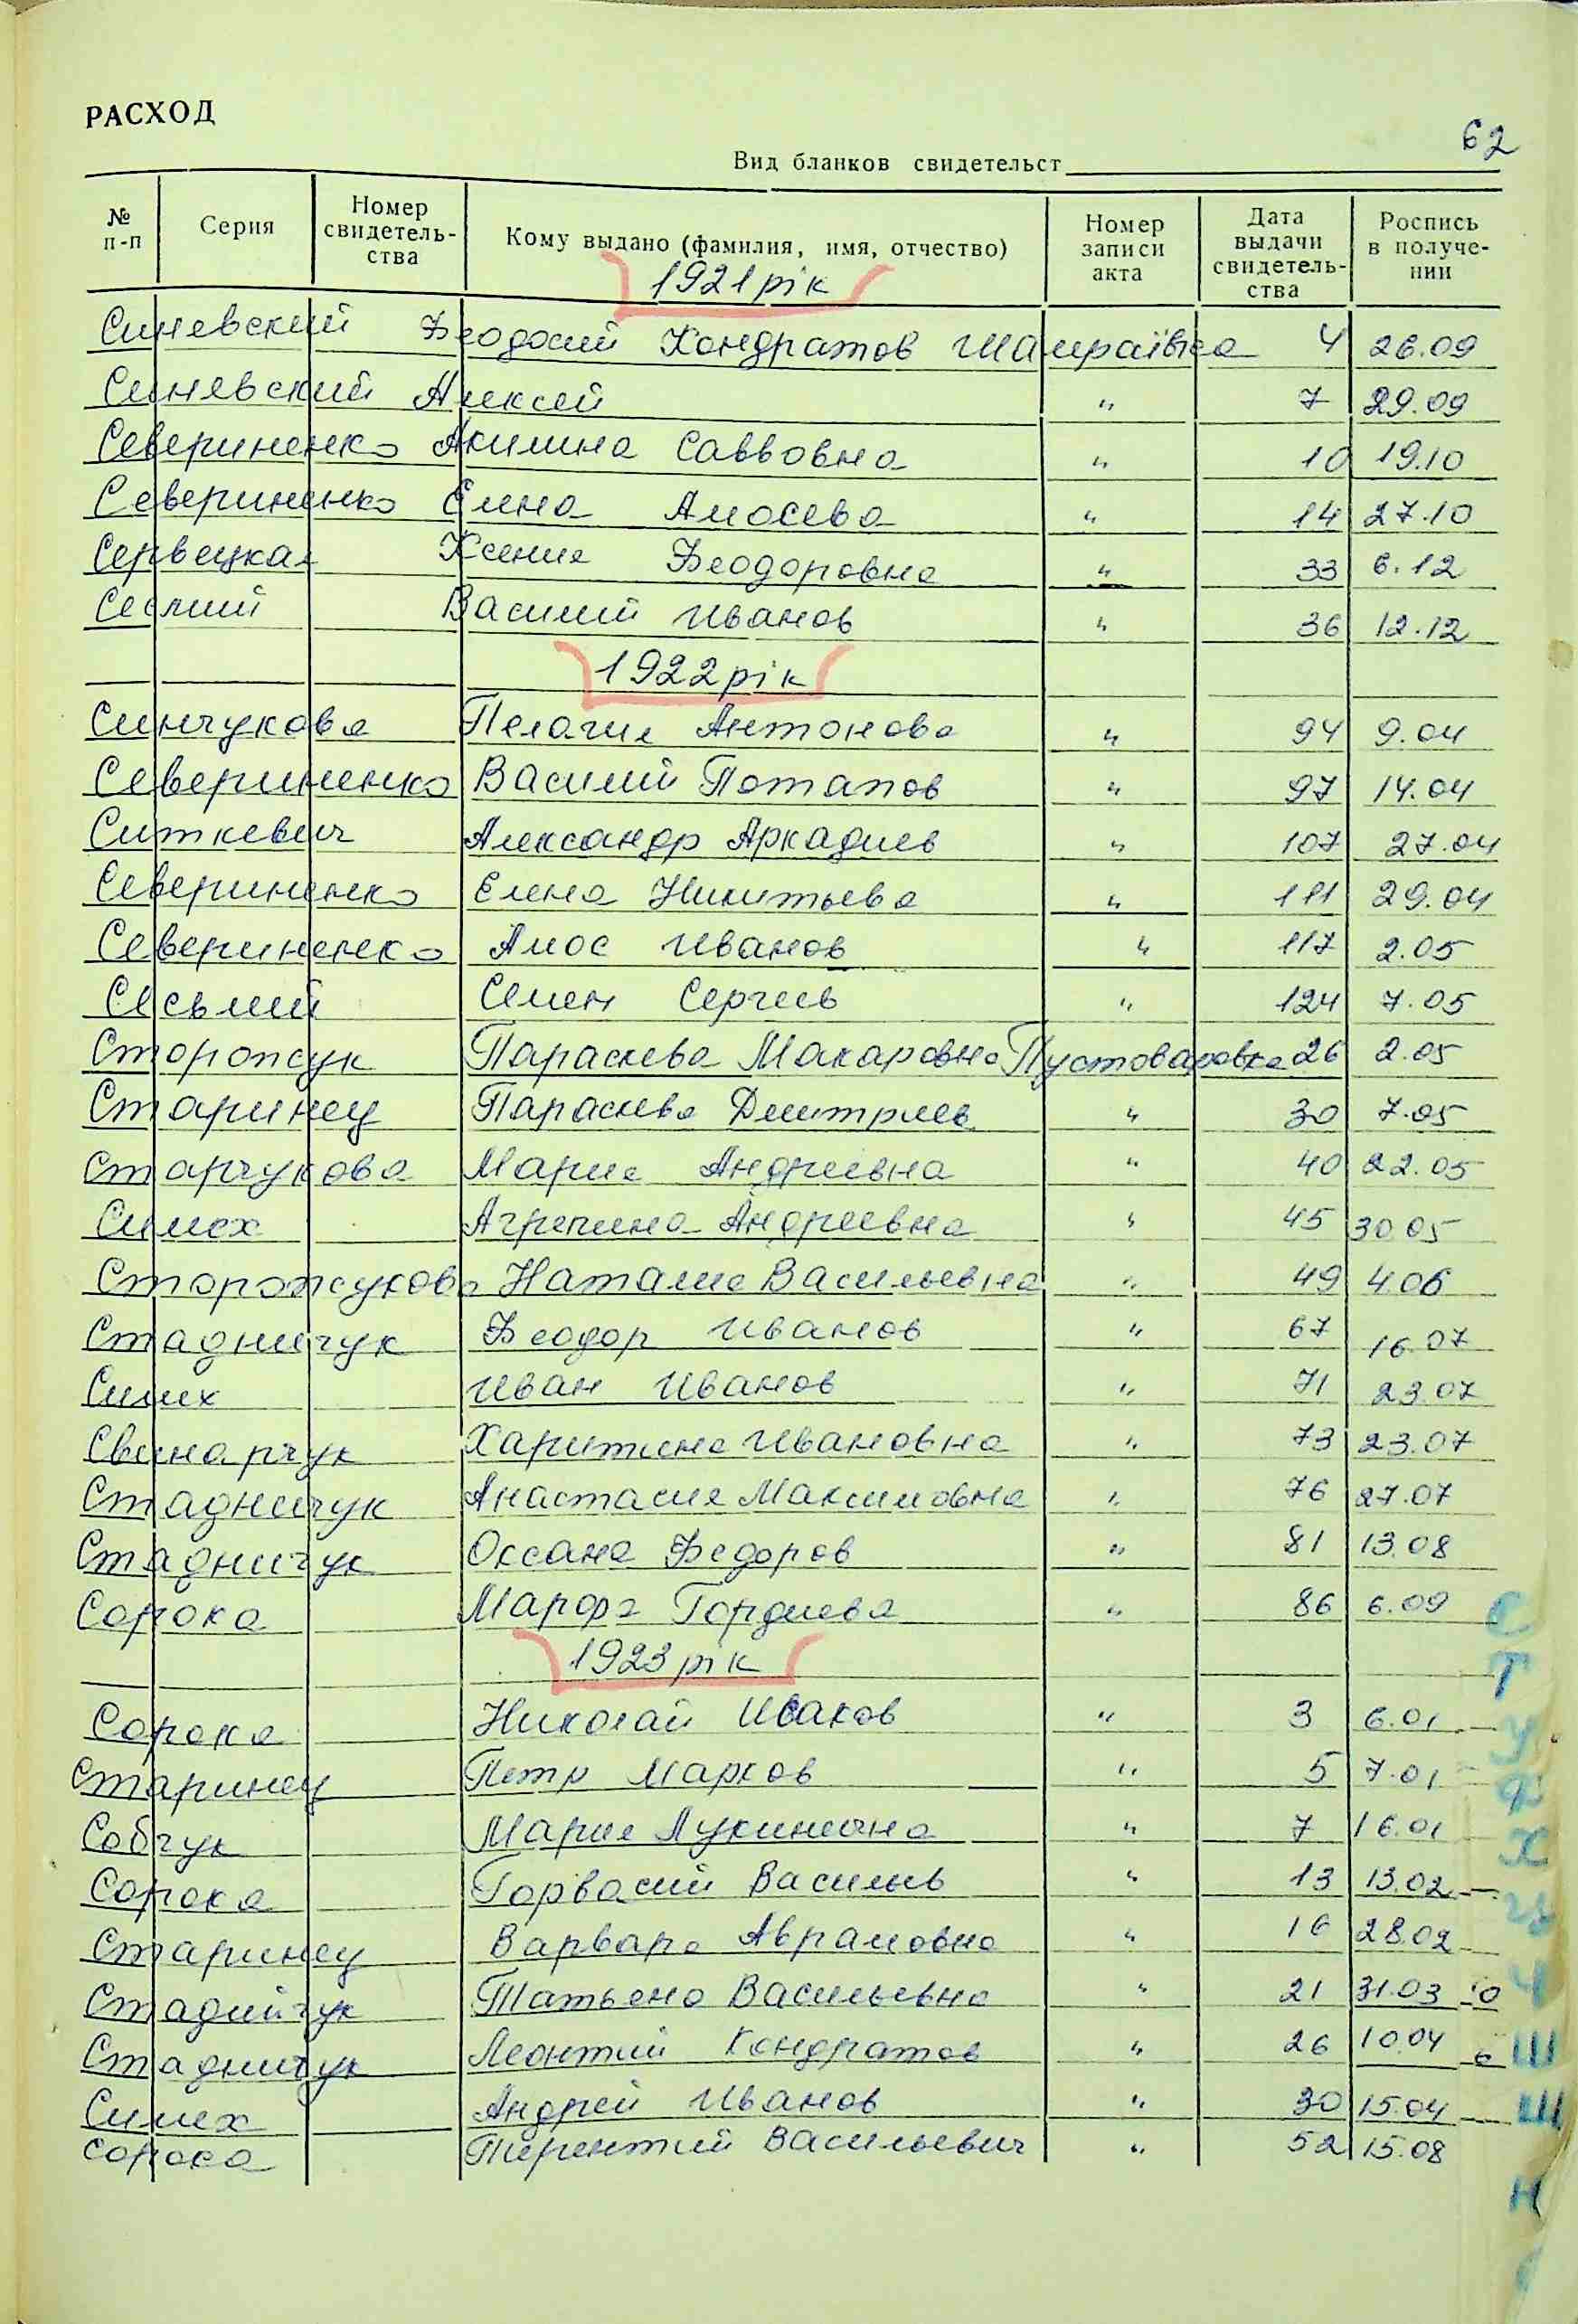 РАСХОД
62
Вид бланков свидетельст
№ п-п Серия Номер свидетель-ства Кому выдано (фамилия, имя, отчество) Номер записи акта Дата выдачи свидетель-ства Роспись в получе-нии
1921 рік
Синевский Феодосий Кондратов Шамраївка 4 26.09
Синявский Алексей " 7 29.09
Севериненко Акилина Саввовна " 10 19.10
Севериненко Елена Амосева " 14 27.10
Сервецкая Ксения Феодоровна " 33 6.12
Василий Иванов " 36 12.12
1922 рік
Синчукова Пелагия Антонова " 94 9.04
Севериненко Василий Потапов " 97 14.04
Ситкевич Александр Аркадиев " 107 27.04
Севериненко Елена Никитьева " 111 29.04
Севериненко Амос Иванов " 117 2.05
Сесьмий Семен Сергеев " 124 7.05
Сторожук Параскева Макаровна Пустоваровка 26 2.05
Старинец Параскева Дмитриев " 30 7.05
Старчукова Мария Андреевна " 40 22.05
Симех Агрепина Андреевна " 45 30.05
Сторожукова Наталия Васильевна " 49 4.06
Стадничук Феодор Иванов " 67 16.07
Симех Иван Иванов " 71 23.07
Свинарчук Харитина Ивановна " 73 23.07
Стадничук Анастасия Максимовна " 76 27.07
Стадничук Оксана Федоров " 81 13.08
Сорока Марфа Гордиева " 86 6.09
1923 рік
Сорока Николай Исаков " 3 6.01
Старинец Петр Марков " 5 7.01
Собчук Мария Лукинична " 7 16.01
Сорока Горвасий Васильев " 13 13.02
Старинец Варвара Аврамовна " 16 28.02
Стадийчук Татьяна Васильевна " 21 31.03
Стадничук Леонтий Кондратов " 26 10.04
Симех Андрей Иванов " 30 15.04
Сорока Терентий Васильевич " 52 15.08
С
Т
У
Ф
Х
Ц
Ч
Ш
Щ